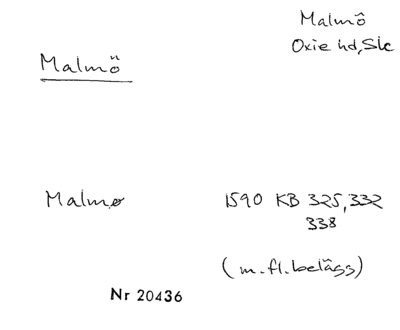 Malmö
Oxie hd, Sk
Malmö
Malmø
1590 KB 325, 332
338
(m.fl.belägg)
Nr 20436